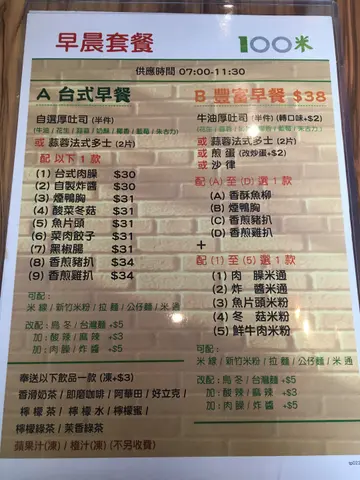 早晨套餐
100米
供應時間 07:00-11:30
A 台式早餐
自選厚吐司 (半件)
(牛油 / 花生 / 蒜蓉 / 奶酥 / 椰香 / 葡萄 / 朱古力)
或 蒜蓉法式多士 (2片)
配 以下 1 款
(1) 台式肉臊 $30
(2) 自製炸醬 $30
(3) 煙鴨胸 $31
(4) 酸菜冬菇 $31
(5) 魚片頭 $31
(6) 菜肉餃子 $31
(7) 黑椒腸 $31
(8) 香煎豬扒 $34
(9) 香煎雞扒 $34
可配 :
米 線 / 新竹米粉 / 拉 麵 / 公仔麵 / 米 通
改配 : 烏 冬 / 台灣麵 +$5
加 : 酸 辣 / 麻 辣 +$3
加 : 肉 臊 / 炸 醬 +$5
奉送以下飲品一款 (凍+$3)
香滑奶茶 / 即磨咖啡 / 阿華田 / 好立克 /
檸 檬 茶 / 檸 檬 水 / 檸檬蜜 /
檸檬綠茶 / 茉香綠茶
蘋果汁(凍) / 橙汁(凍) (不另收費)
B 豐富早餐 $38
牛油厚吐司 (半件) (轉口味+$2)
(花生 / 蒜蓉 / 奶酥 / 椰香 / 葡萄 / 朱古力)
或 蒜蓉法式多士 (2片)
或 煎蛋 (改炒蛋+$2)
或 沙律
配 (A) 至 (D) 選 1 款
(A) 香酥魚柳
(B) 煙鴨胸
(C) 香煎豬扒
(D) 香煎雞扒
+
配 (1) 至 (5) 選 1 款
(1) 肉 臊米通
(2) 炸 醬米通
(3) 魚片頭米粉
(4) 冬 菇米粉
(5) 鮮牛肉米粉
可配 :
米 線 / 新竹米粉 / 拉 麵 / 公仔麵 / 米 通
改配 : 烏 冬 / 台灣麵 +$5
加 : 酸 辣 / 麻 辣 +$3
加 : 肉 臊 / 炸 醬 +$5